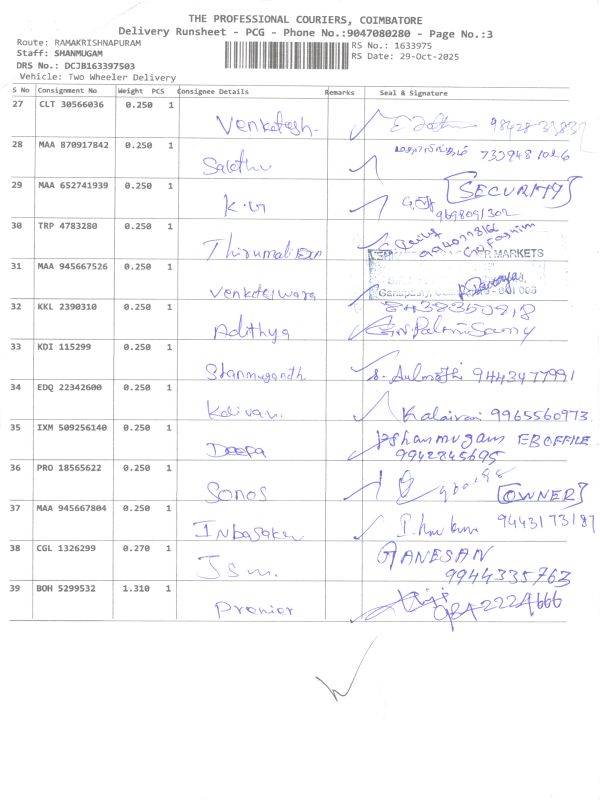 THE PROFESSIONAL COURIERS, COIMBATORE
Delivery Runsheet - PCG - Phone No.:9047080280 - Page No.:3
Route: RAMAKRISHNAPURAM RS No.: 1633975
Staff: SHANMUGAM RS Date: 29-Oct-2025
DRS No.: DCJB163397503
Vehicle: Two Wheeler Delivery
S No Consignment No Weight PCS Consignee Details Remarks Seal & Signature
27 CLT 30566036 0.250 1
Venkatesh.
28 MAA 870917842 0.250 1 7339481026
Sakthi
29 MAA 652741939 0.250 1 [SECURITY]
K.G 9698091302
30 TRP 4783280 0.250 1
Thirumali Exp MARKETS
31 MAA 945667526 0.250 1
Venkateswara
32 KKL 2390310 0.250 1 8438350918
Adithya G.N. Palanisamy
33 KDI 115299 0.250 1
Shanmuganth 9443477991
34 EDQ 22342600 0.250 1
Kalivani Kalaivani 9965560973
35 IXM 509256140 0.250 1 Shanmugam EB OFFICE
Deepa 9942845695
36 PRO 18565622 0.250 1
Sonos [OWNER]
37 MAA 945667804 0.250 1 9443173187
Inbasakar
38 CGL 1326299 0.270 1 GANESAN
Jsm. 9944335763
39 BOH 5299532 1.310 1
Premier